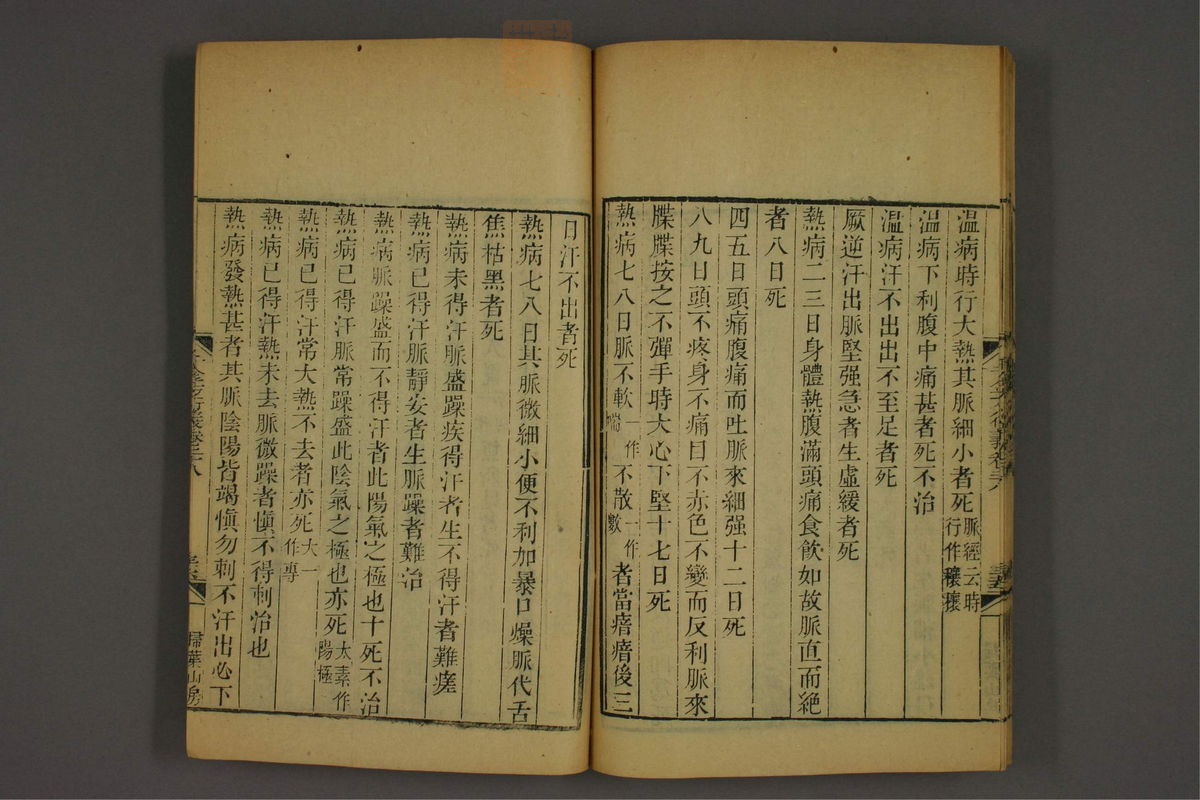 温病時行大熱其脈細小者死脈經云時行作䆃䆃
温病下利腹中痛甚者死不治
温病汗不出出不至足者死
厥逆汗出脈堅强急者生虛緩者死
熱病二三日身體熱腹滿頭痛食飲如故脈直而絶
者八日死
四五日頭痛腹痛而吐脈來細强十二日死
八九日頭不疼身不痛目不赤色不變而反利脈來
牒牒按之不彈手時大心下堅十七日死
熱病七八日脈不軟一作喘不散一作數者當瘖瘖後三
日汗不出者死
熱病七八日其脈微細小便不利加暴口燥脈代舌
焦枯黑者死
熱病未得汗脈盛躁疾得汗者生不得汗者難瘥
熱病已得汗脈靜安者生脈躁者難治
熱病脈躁盛而不得汗者此陽氣之極也十死不治
熱病已得汗脈常躁盛此陰氣之極也亦死太素作陽極
熱病已得汗常大熱不去者亦死大一作專
熱病已得汗熱未去脈微躁者愼不得刺治也
熱病發熱甚者其脈陰陽皆竭愼勿刺不汗出必下
掃葉山房